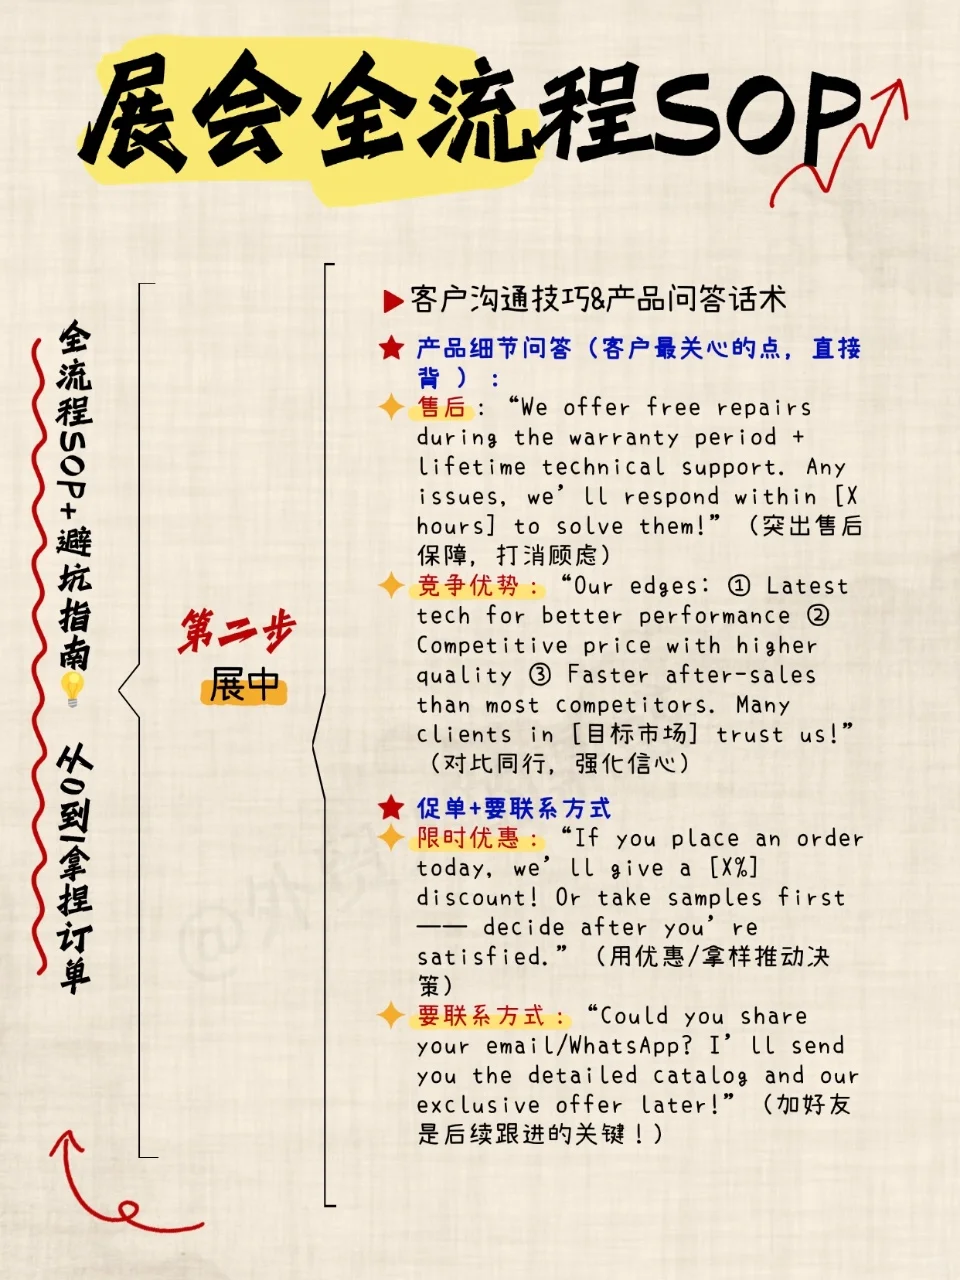 展会全流程SOP
全流程SOP+避坑指南💡 从0到1拿捏订单
第二步
展中
客户沟通技巧&产品问答话术
产品细节问答（客户最关心的点，直接
背）：
售后：“We offer free repairs
during the warranty period +
lifetime technical support. Any
issues, we’ll respond within [X
hours] to solve them!”（突出售后
保障，打消顾虑）
竞争优势：“Our edges: ① Latest
tech for better performance ②
Competitive price with higher
quality ③ Faster after-sales
than most competitors. Many
clients in [目标市场] trust us!”
（对比同行，强化信心）
促单+要联系方式
限时优惠：“If you place an order
today, we’ll give a [X%]
discount! Or take samples first
—— decide after you’re
satisfied.”（用优惠/拿样推动决
策）
要联系方式：“Could you share
your email/WhatsApp? I’ll send
you the detailed catalog and our
exclusive offer later!”（加好友
是后续跟进的关键！）